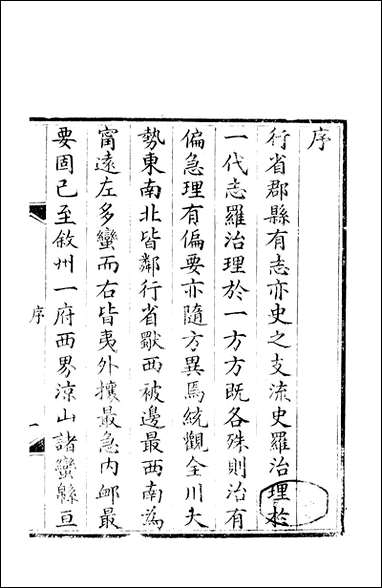 序
行省郡縣有志亦史之支流史羅治理於
一代志羅治理於一方方既各殊則治有
偏急理有偏要亦隨方異焉統觀全川大
勢東南北皆鄰行省歐西被邊最西南為
甯遠左多蠻而右皆夷外攘最急内䘏最
要固已至敘州一府西界涼山諸蠻緜亘
序
一